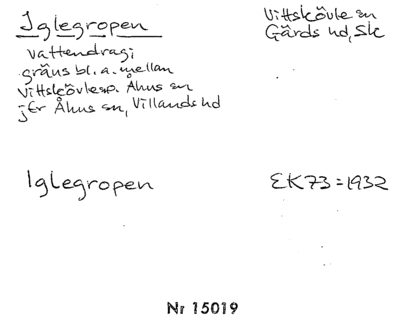 Iglegropen
Vittskövle sn
Gärds hd, Sk
vattendrag i
gräns bl. a. mellan
Vittskövle sn. Åhus sn
jfr Åhus sn, Villands hd
Iglegropen
EK73 = 1932
Nr 15019